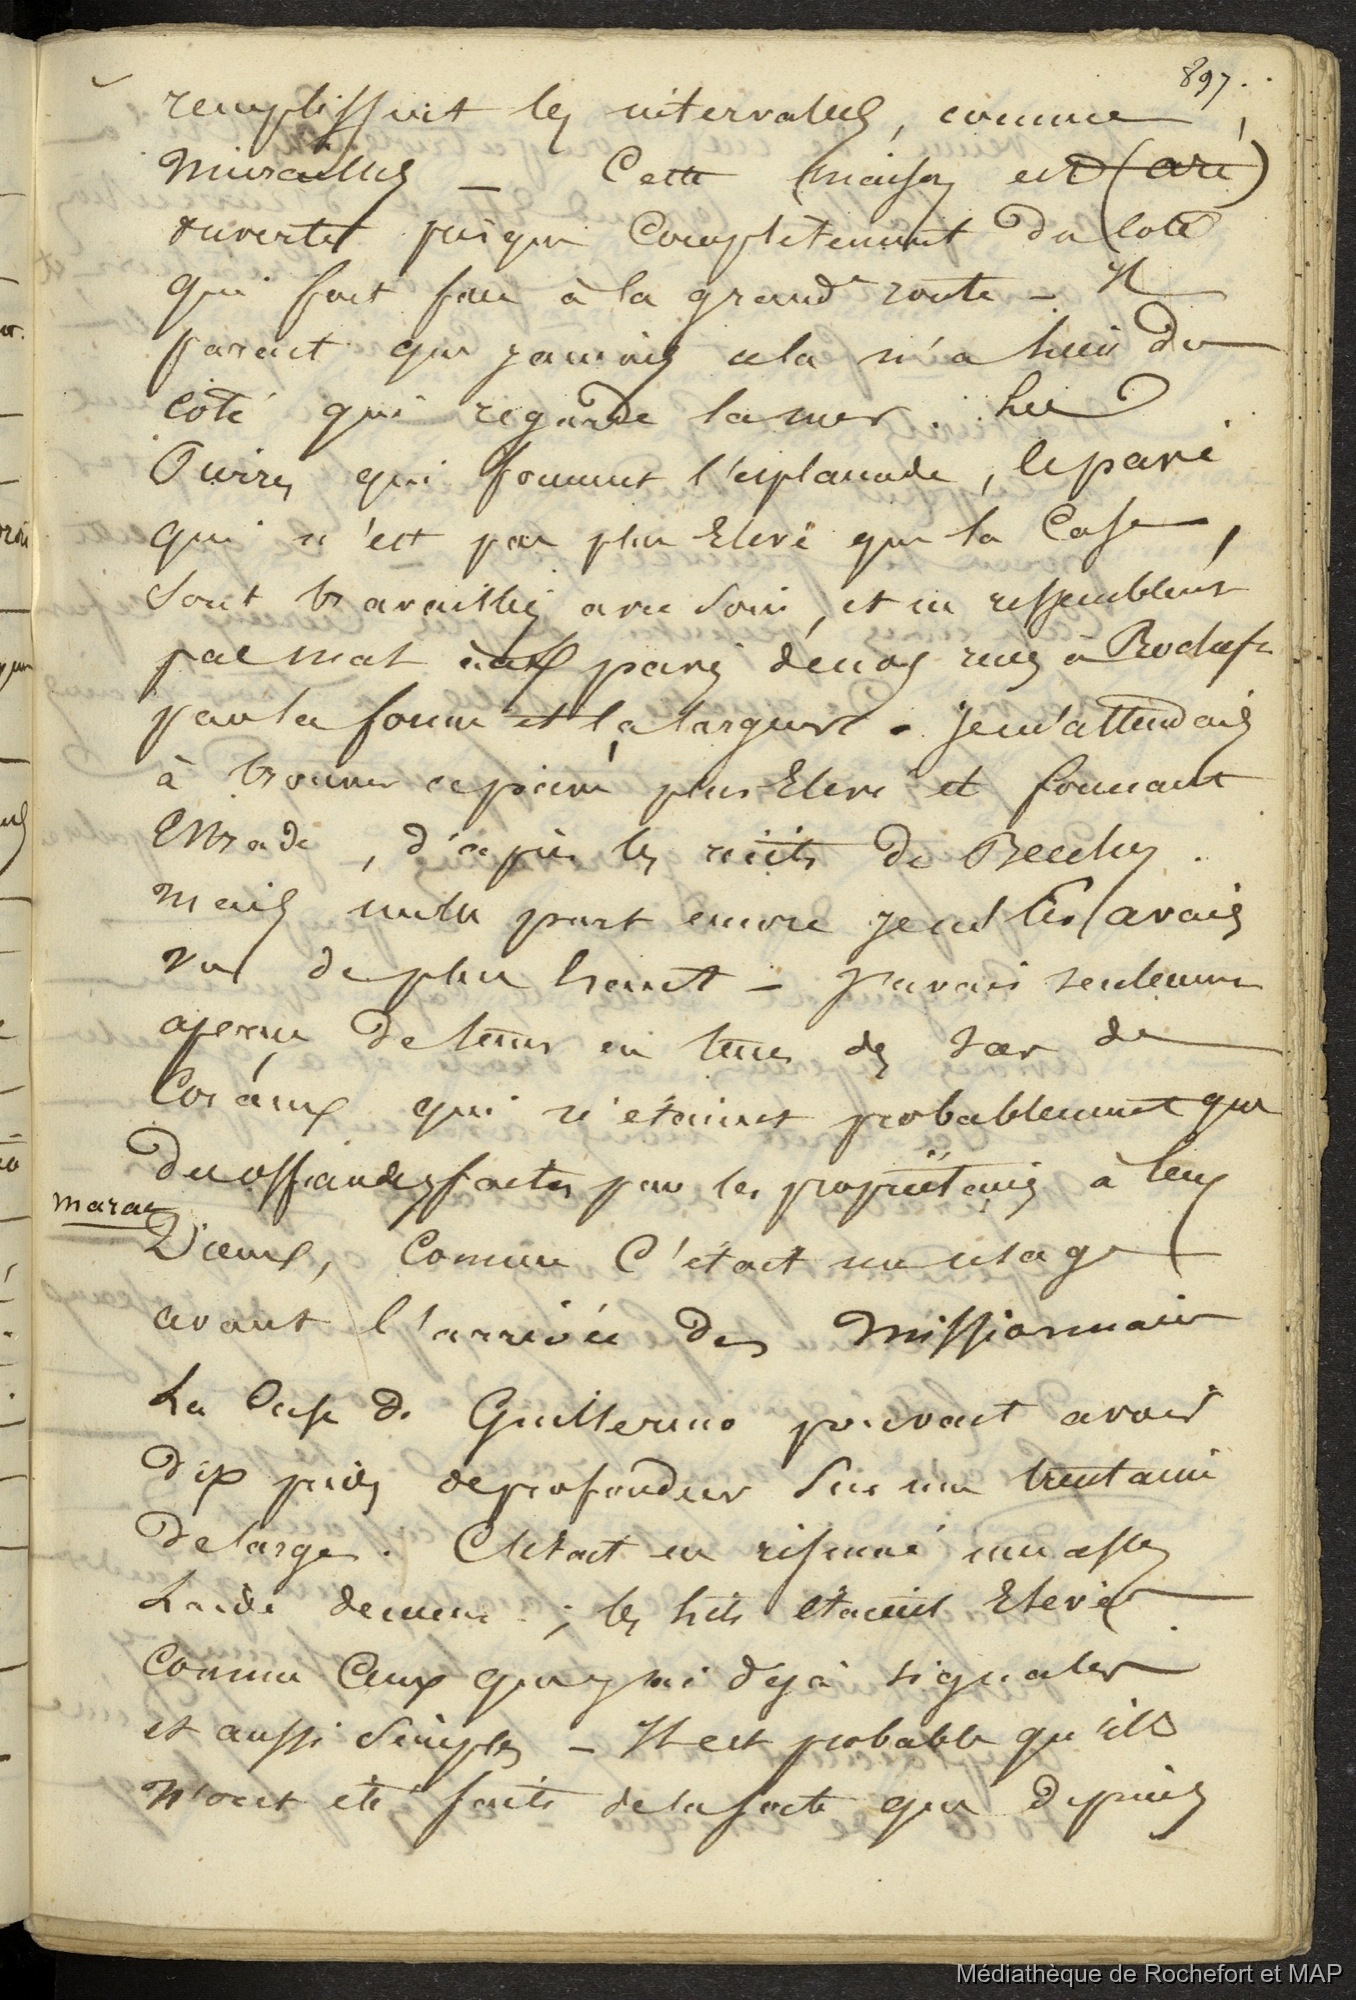 897.
remplissoit les intervalles, comme
Murailles _ Cette (maison est (are)
ouverte presque Completement du Coté
qui fait face à la grande route _ Il
parait que jamais cela n'a lieu du
côté qui regarde la mer. Les
Pierres qui forment l'esplanade, le pavé
qui n'est pas plus Elevé que la Case,
Sont travaillés avec Soin, et en ressemblent
pas mal aux pavés de nos rues à Rocheft
par la forme et la largeur. Je m'attendais
à trouver ce pavé plus Elevé et formant
Estrade, d'après les récits de Beechey.
Mais nulle part encore je ne les avais
vus de plus haut _ J'avais seulement
aperçu de tems en tems des tas de
Coraux qui n'étaient probablement que
des offrandes faites par les propriétaires à leurs
marae
Dieux, Comme C'était un usage
avant l'arrivée des Missionnaires
La Case de Guillermo pouvait avoir
dix pieds de profondeur Sur une trentaine
de large. C'était en résumé une assez
Laide demeure ; les lits étaient Elevés
Comme Ceux que j'ai déjà signaler
et aussi Simples _ Il est probable qu'ils
n'ont été faits de la sorte que depuis
Médiathèque de Rochefort et MAP